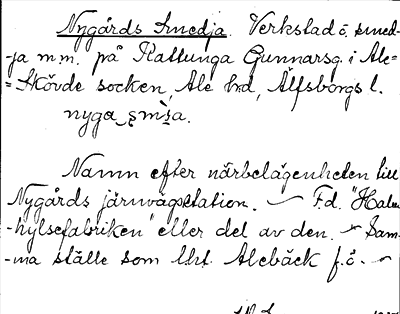 Nygårds Smedja. Verkstad o. smed-
-ja m.m. på Kattunga Gunnarsg. i Ale=
=Skövde socken, Ale hd, Älfsborgs l.
nyga
Namn efter närbelägenheten till
Nygårds järnvägsstation. — F.d. "Halm-
-hylsefabriken" eller del av den. — Sam-
-ma ställe som lht. Alebäck f.ö. —